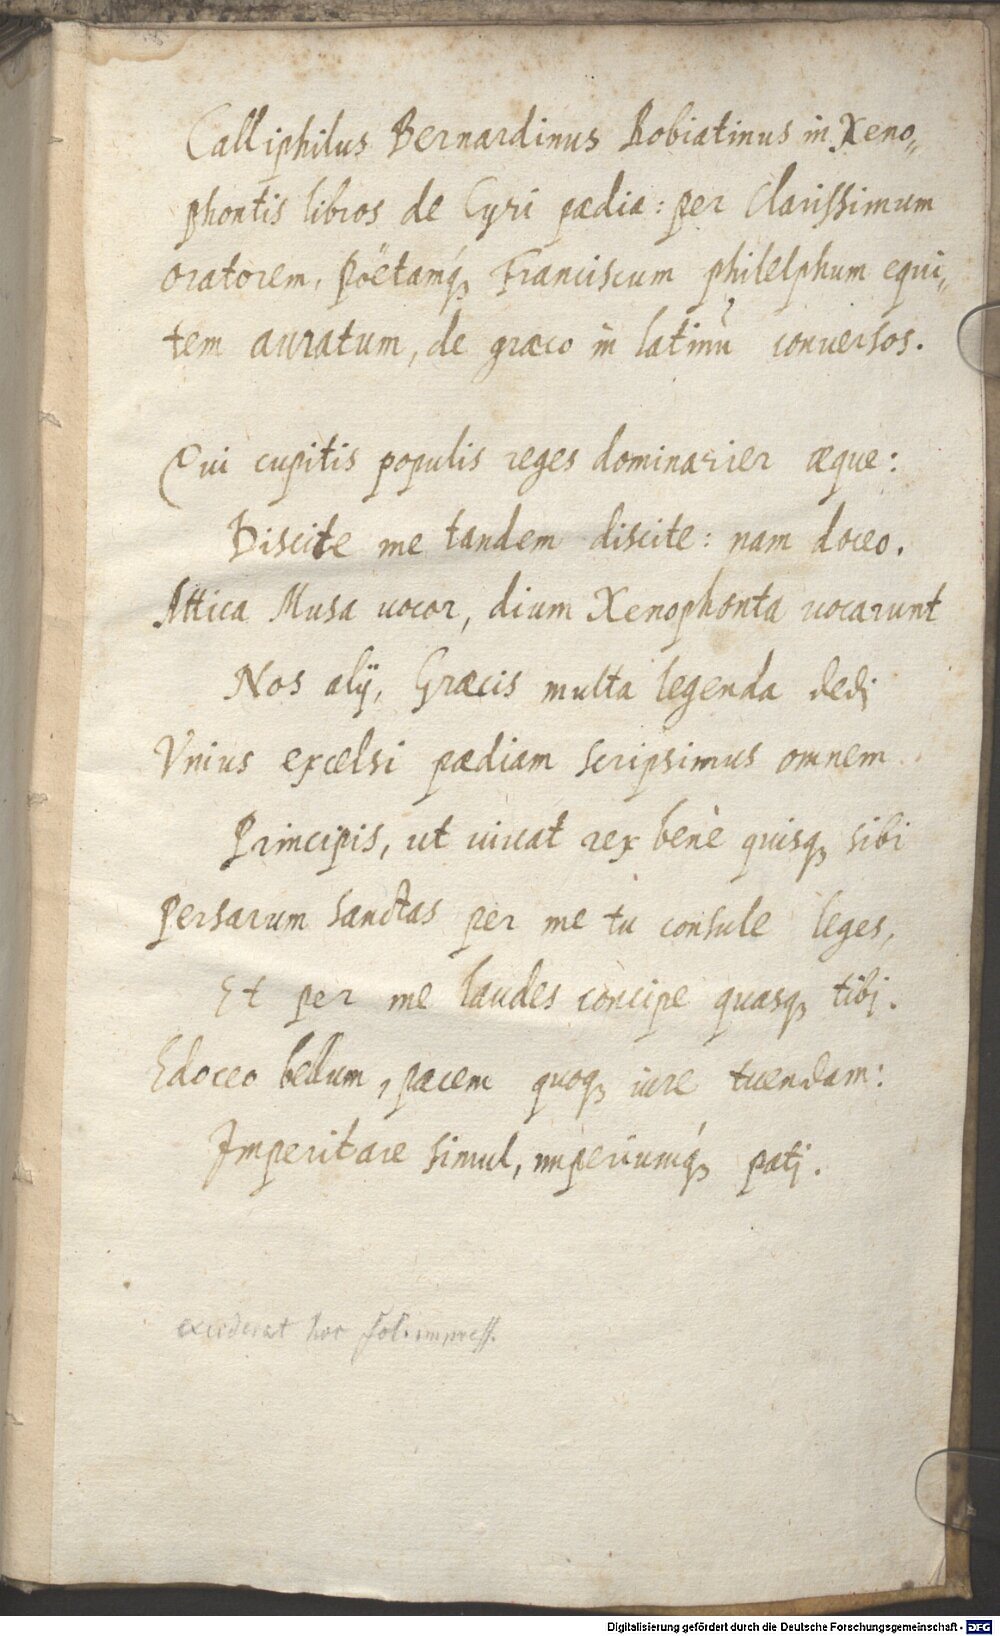 Calliphilus Bernardinus Robiatinus in Xeno„
phontis libros de Cyri pædia: per Clarissimum
oratorem, Poëtamq́ꝫ Franciscum philelphum equi„
tem auratum, de græco in latinũ conuersos.
Qui cupitis populis reges dominarier æque:
Discite me tandem discite: nam doceo.
Attica Musa uocor, dium Xenophonta uocarunt
Nos alij, Græcis multa legenda dedj
Vnius excelsi pædiam scripsimus omnem
Principis, ut uiuat rex benè quisqꝫ sibi
Persarum sanctas per me tu consule leges,
Et per me laudes concipe quasqꝫ tibj.
Edoceo bellum, pacem quoqꝫ iure tuendam:
Imperitare simul, imperiumq́ꝫ patj.
exciderat hoc fol. impress.
Digitalisierung gefördert durch die Deutsche Forschungsgemeinschaft - DFG